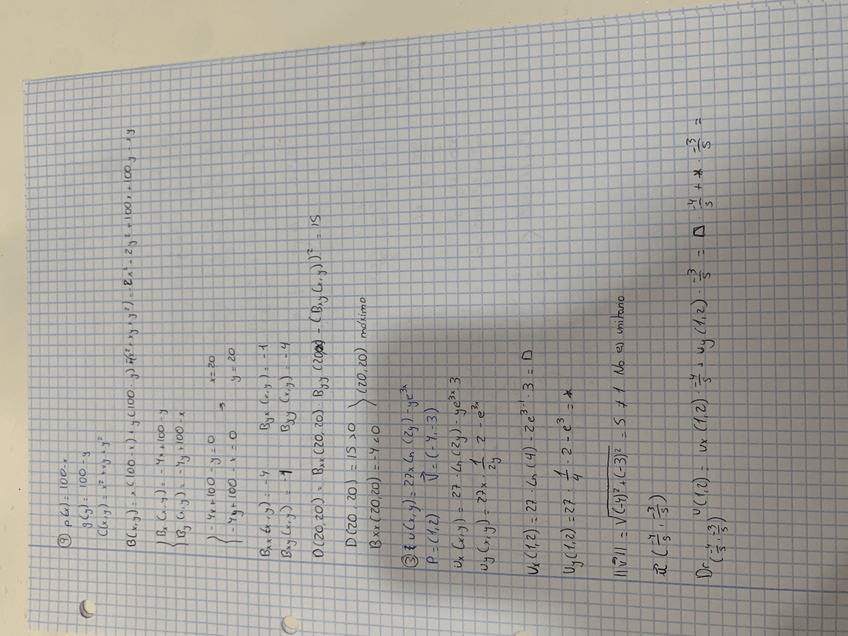 ④ p(x) = 100-x
q(y) = 100-y
C(x,y) = x²+xy+y²
B(x,y) = x(100-x)+y(100-y)-(x²+xy+y²) = -2x²-2y²+100x+100y-xy
{ Bx(x,y) = -4x+100-y
{ By(x,y) = -4y+100-x
{ -4x+100-y=0 → x=20
{ -4y+100-x=0 y=20
Bxx(x,y) = -4 Byx(x,y) = -1
Bxy(x,y) = -1 Byy(x,y) = -4
D(20,20) = Bxx(20,20)·Byy(20,20) - (Bxy(x,y))² = 15
D(20,20) = 15>0
Bxx(20,20) = -4<0 } (20,20) máximo
③ u(x,y) = 27x Ln(2y)-ye³ˣ
P = (1,2) v⃗ = (-4,-3)
ux(x,y) = 27·Ln(2y)-ye³ˣ·3
uy(x,y) = 27x·1/2y·2-e³ˣ
ux(1,2) = 27·Ln(4)-2e³·¹·3 = □
uy(1,2) = 27·1/4·2-e³ = *
||v⃗|| = √(-4)²+(-3)² = 5 ≠ 1 No es unitario
u⃗ (-4/5, -3/5)
D(-4/5, -3/5) u(1,2) = ux(1,2)·-4/5 + uy(1,2)·-3/5 = □·-4/5 + *·-3/5 =